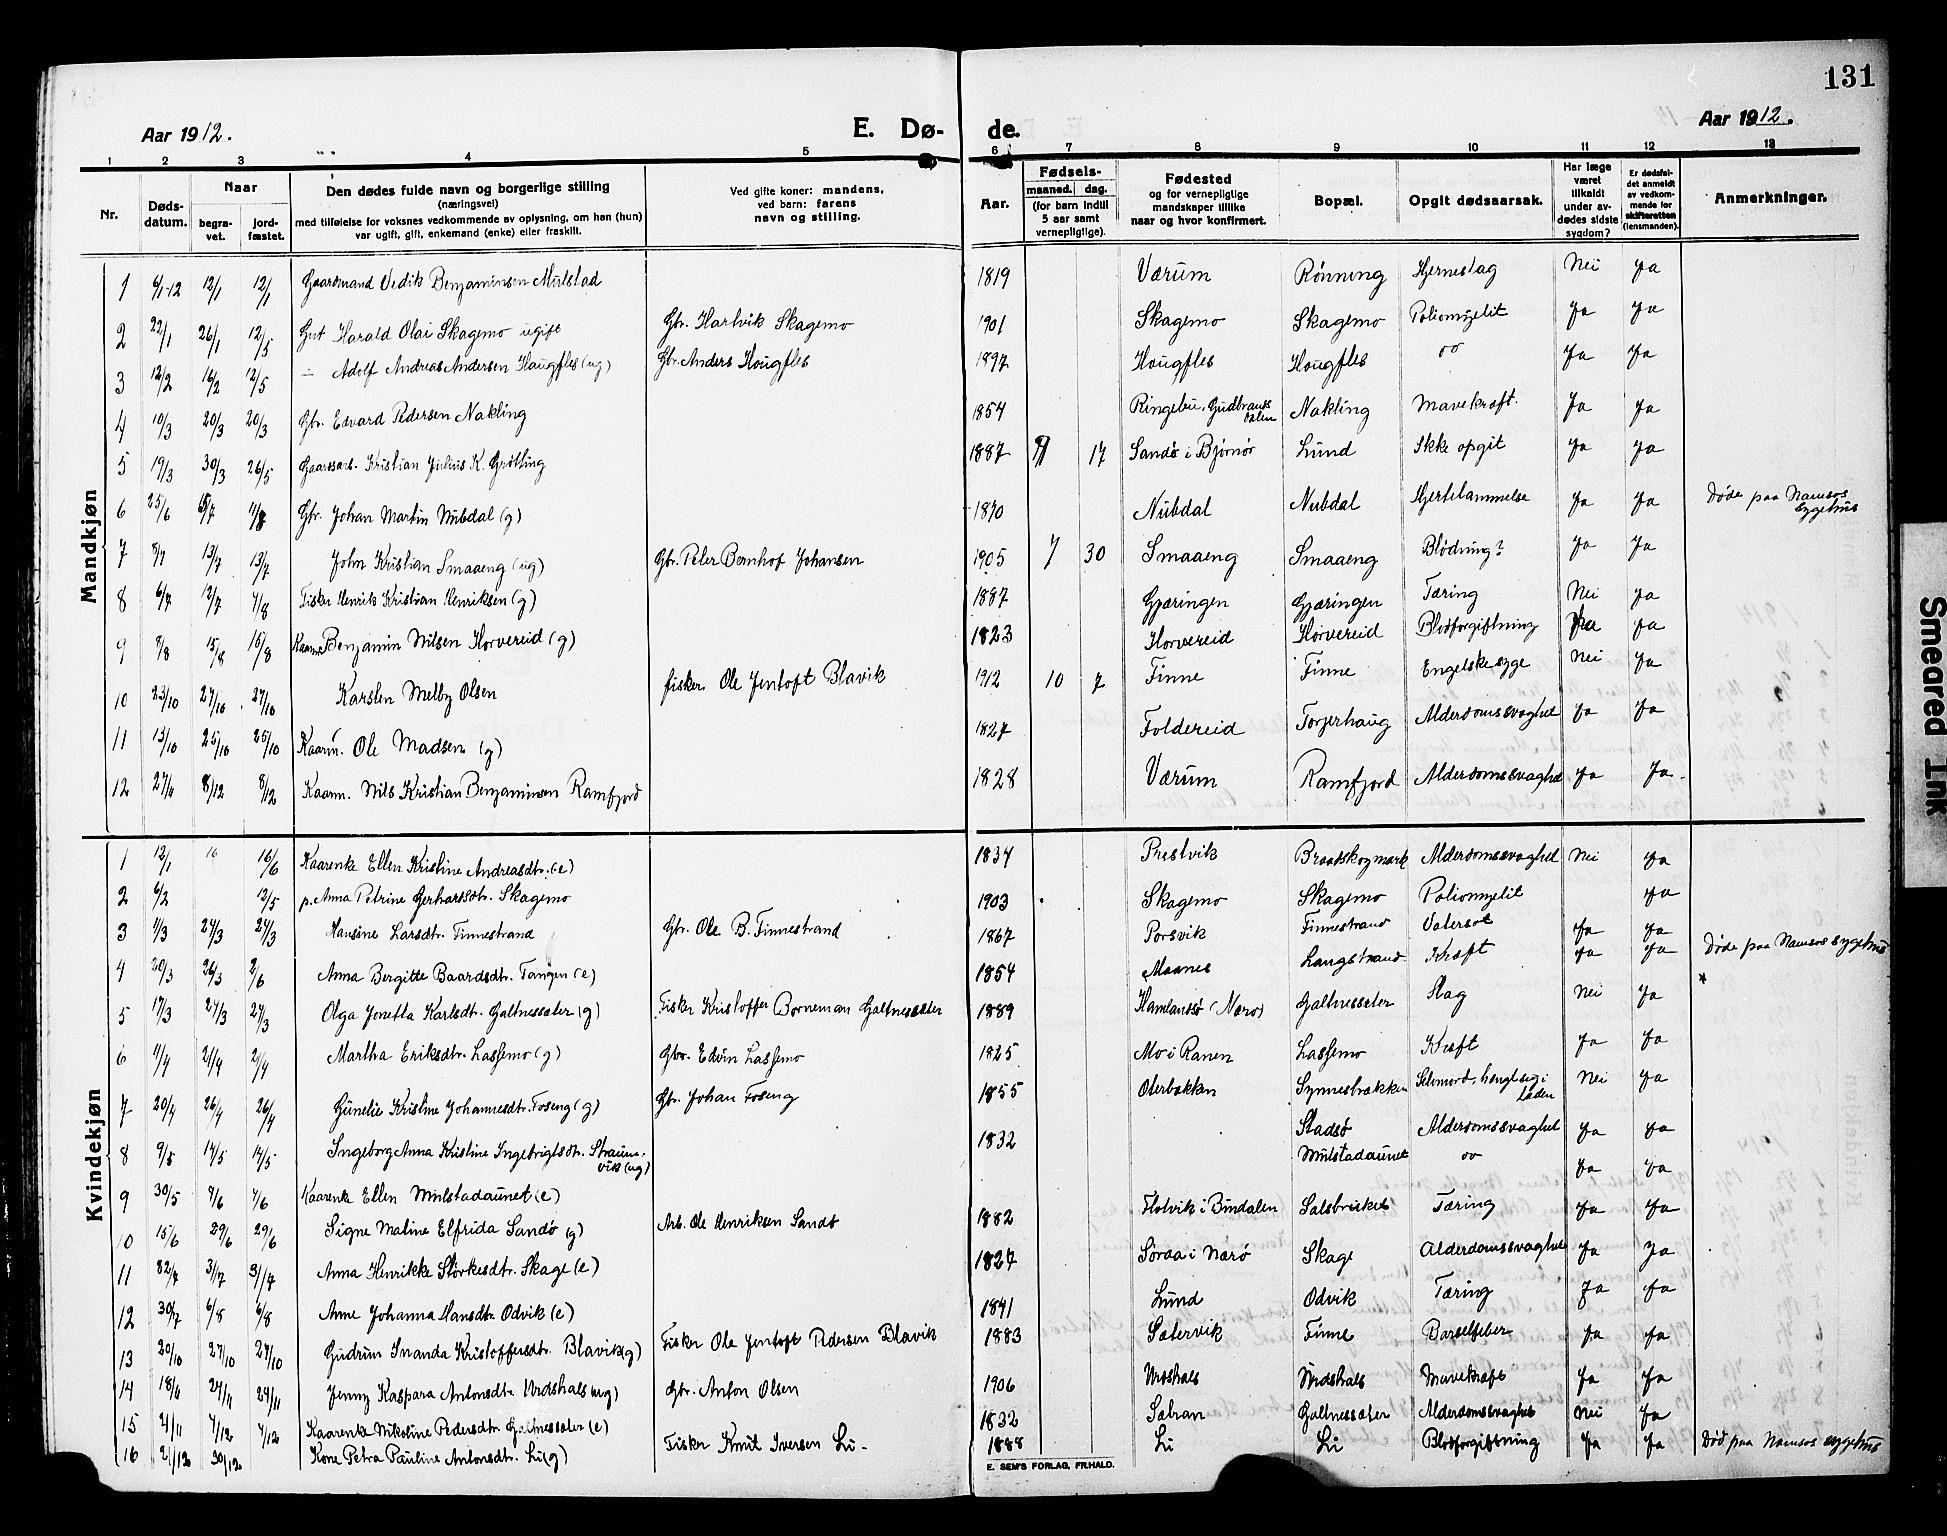 131
Aar 1912.
E. Dø-
de.
Aar 1912.
1 2 3 4 5 6 7 8 9 10 11 12 13
Nr.
Døds-
datum.
Naar
begra-
vet.
jord-
fæstet.
Den dødes fulde navn og borgerlige stilling
(næringsvei)
med tilføielse for voksnes vedkommende av oplysning, om han (hun)
var ugift, gift, enkemand (enke) eller fraskilt.
Ved gifte koner: mandens,
ved barn: farens
navn og stilling.
Aar.
Fødsels-
maaned. dag.
(for barn indtil
5 aar samt
vernepligtige).
Fødested
og for vernepligtige
mandskaper tillike
naar og hvor konfirmert.
Bopæl.
Opgit dødsaarsak.
Har læge
været
tilkaldt
under av-
dødes sidste
sygdom?
Er dødsfal-
det anmeldt
av vedkom-
mende for
skifteretten
(lensmanden).
Anmerkninger.
Mandkjøn
1 6/1-12 12/1 12/1 Gaardmand Vedik Benjaminsen Mulstad 1819 Værum Rönning Hjerneslag Nei Ja
2 22/1 26/1 12/5 Gut Harald Olai Skagemo ugift Gbr. Hartvik Skagemo 1901 Skagemo Skagemo Poliomyelit Ja Ja
3 12/2 16/2 12/5 — Adolf Andreas Andersen Haugfles (ug) Gbr. Anders Hougfles 1897 Hougfles Hougfles oo Ja Ja
4 10/3 20/3 20/3 Gbr. Edvard Pedersen Nakling 1854 Ringebu, Gudbrands dalen Nakling Mavekræft. Ja Ja
5 19/3 30/3 26/5 Gaardsarb. Kristian Julius K. Grötting 1887 17 Sandö i Bjørnör Lund Ikke opgit Ja Ja
6 25/6 Gbr. Johan Martin Nubdal (g) Nubdal Nubdal Hjertelammelse Ja Ja Døde paa Namsos sygehus
7 8/7 13/7 13/7 John Kristian Smaaeng (ug) Gbr. Peter Bernhof Johansen 1905 7 30 Smaaeng Smaaeng Blödning? Ja Ja
8 6/7 12/7 4/8 Fisker Henrik Kristian Henriksen (g) 1887 Gjæringen Gjæringen Tæring Nei Ja
9 8/8 15/8 15/8 Kaarm. Benjamin Nilsen Horvereid (g) 1823 Horvereid Horvereid Blodforgiftning Ja
10 23/10 27/10 27/10 Karsten Melby Olsen fisker Ole Jentoft Blavik 1912 10 7 Finne Finne Engelskesyge Nei Ja
11 13/10 25/10 25/10 Kaarm. Ole Madsen (g) 1827 Foldereid Torjerhaug Alderdomssvaghet Ja Ja
12 27/11 8/12 8/12 Kaarm. Nils Kristian Benjaminsen Ramfjord 1828 Værum Ramfjord Alderdomssvaghet Ja Ja
Kvindekjøn
1 12/1 16 16/6 Kaarenke Ellen Kristine Andreasdtr. (e) 1834 Prestvik Braatskogmark Alderdomssvaghet Nei Ja
2 6/2 12/5 p. Anna Petrine Gerhardsdtr. Skagemo 1903 Skagemo Skagemo Poliomyelit Ja
3 11/3 27/3 27/3 Hansine Larsdtr. Finnestrand Gbr. Ole B. Finnestrand 1867 Porsvik Finnestrand Vatersot Ja Ja Døde paa Namsos sygehus
4 20/3 26/3 2/6 Anna Bergitte Baardsdtr. Tangen (e) 1854 Maanes Langstrand Kræft Ja Ja
5 17/3 27/3 27/3 Olga Jonetta Karlsdt. Galtnessæter (g) Fisker Kristoffer Borneman Galtnessæter 1889 Hamlandsö (Nærö) Galtnessæter Slag Nei Ja
6 11/4 21/4 21/4 Martha Eriksdtr. Lassemo (g) Gbr. Edvin Lassemo 1825 Mo i Ranen Lassemo Kræft Ja Ja
7 20/4 26/4 26/4 Gunelie Kristine Johannesdtr. Foseng (g) Gbr. Johan Foseng 1855 Oterbakken Synnesbakken Selvmord, hengt seg i Laden Nei Ja
8 9/5 14/5 14/5 Ingeborg Anna Kristine Ingebrigtsdtr. Straum- vik (ug) 1832 Stadsö Alderdomssvaghet Ja Ja
9 30/5 4/6 4/6 Kaarenke Ellen Mulstadaunet (e) Mulstadaunet oo Ja Ja
10 15/6 29/6 29/6 Signe Maline Elfrida Sandö (g) Arb. Ole Henriksen Sandö 1882 Holvik i Bindalen Salsbruket Tæring Ja Ja
11 31/7 31/7 Anna Henrikke Störkesdtr. Skage (e) 1827 Söraa i Nærö Skage Alderdomssvaghet Ja Ja
12 30/7 6/8 6/8 Anne Johanna Hansdtr. Odvik (e) 1841 Lund Odvik Tæring Ja Ja
13 20/10 27/10 27/10 Gudrun Inanda Kristoffersdtr. Blavik (g) Fisker Ole Jentoft Pedersen Blavik 1883 Sætervik Finne Barselfeber Ja Ja
14 18/11 24/11 24/11 Jenny Kaspara Antonsdtr. Urdshals (ug) Gbr. Anton Olsen 1906 Urdshals Urdshals Mavekræft Ja Ja
15 4/11 4/12 4/12 Kaarenke Nikoline Pedersdtr. Galtnessæter (e) 1832 Salran Galtnessæter Alderdomssvaghet Nei Ja
16 21/12 30/12 Kone Petra Pauline Antonsdtr. Li (g) Fisker Knut Iversen Li 1888 Li Li Blodforgiftning Ja Ja Död paa Namsos sygehus
E. SEM'S FORLAG, FR.HALD.
Smeared Ink